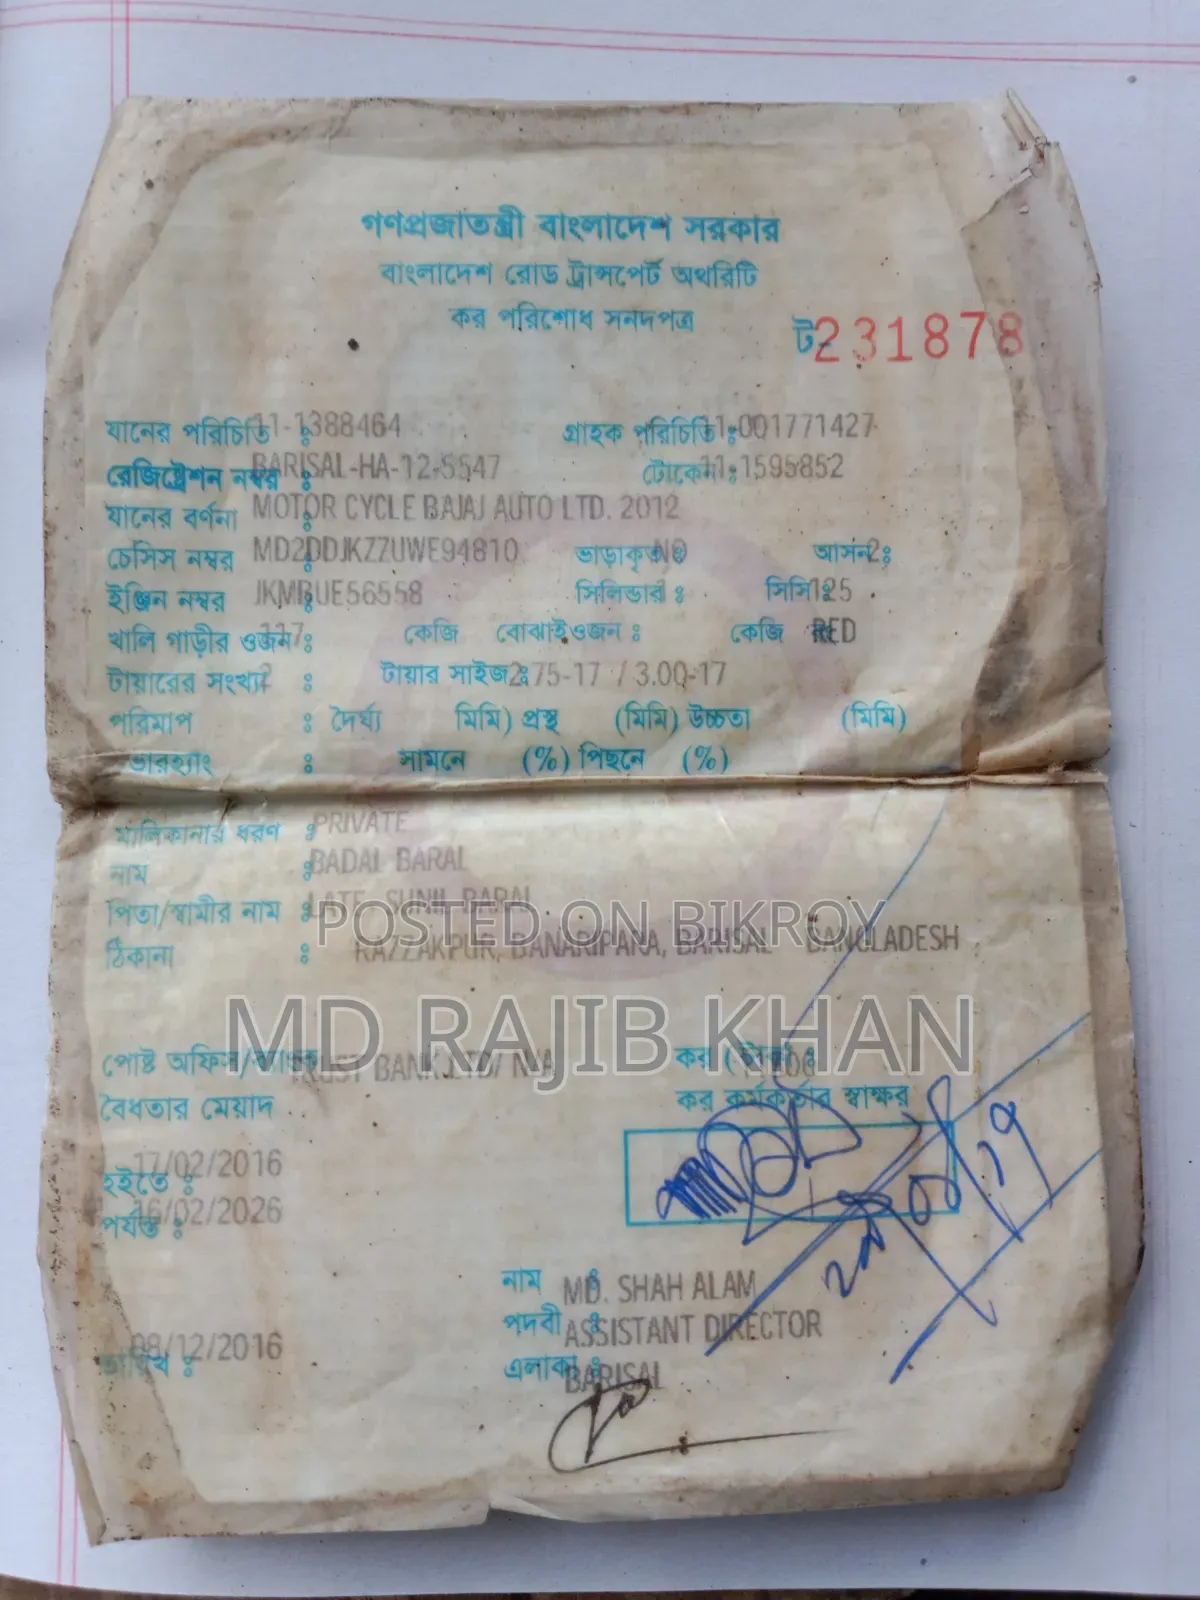 গণপ্রজাতন্ত্রী বাংলাদেশ সরকার
বাংলাদেশ রোড ট্রান্সপোর্ট অথরিটি
কর পরিশোধ সনদপত্র
ট-231878
যানের পরিচিতি : 11-1388464 গ্রাহক পরিচিতি : 11-001771427
রেজিষ্ট্রেশন নম্বর : BARISAL-HA-12-5547 টোকেন : 11-1595852
যানের বর্ণনা : MOTOR CYCLE BAJAJ AUTO LTD. 2012
চেসিস নম্বর : MD2DDJKZZUWE94810 ভাড়াকৃত : NO আসন : 2
ইঞ্জিন নম্বর : JKMBUE56558 সিলিন্ডার : সিসি : 125
খালি গাড়ীর ওজন : 117 কেজি বোঝাই ওজন : কেজি রং RED
টায়ারের সংখ্যা : 2 টায়ার সাইজ : 2.75-17 / 3.00-17
পরিমাপ : দৈর্ঘ্য মিমি) প্রস্থ (মিমি) উচ্চতা (মিমি)
: সামনে (%) পিছনে (%)
মালিকানার ধরণ : PRIVATE
নাম : BADAL BARAL
পিতা/স্বামীর নাম : LATE SUNIL BARAL
POSTED ON BIKROY
ঠিকানা : RAZZAKPUR, BANARIPARA, BARISAL BANGLADESH
MD RAJIB KHAN
পোষ্ট অফিস/ব্যাংক TRUST BANK LTD/ N/A কর (টাকা) :
বৈধতার মেয়াদ কর কর্মকর্তার স্বাক্ষর
হইতে : 17/02/2016
পর্যন্ত : 16/02/2026
নাম : MD. SHAH ALAM
পদবী : ASSISTANT DIRECTOR
তারিখ : 08/12/2016 এলাকা : BARISAL